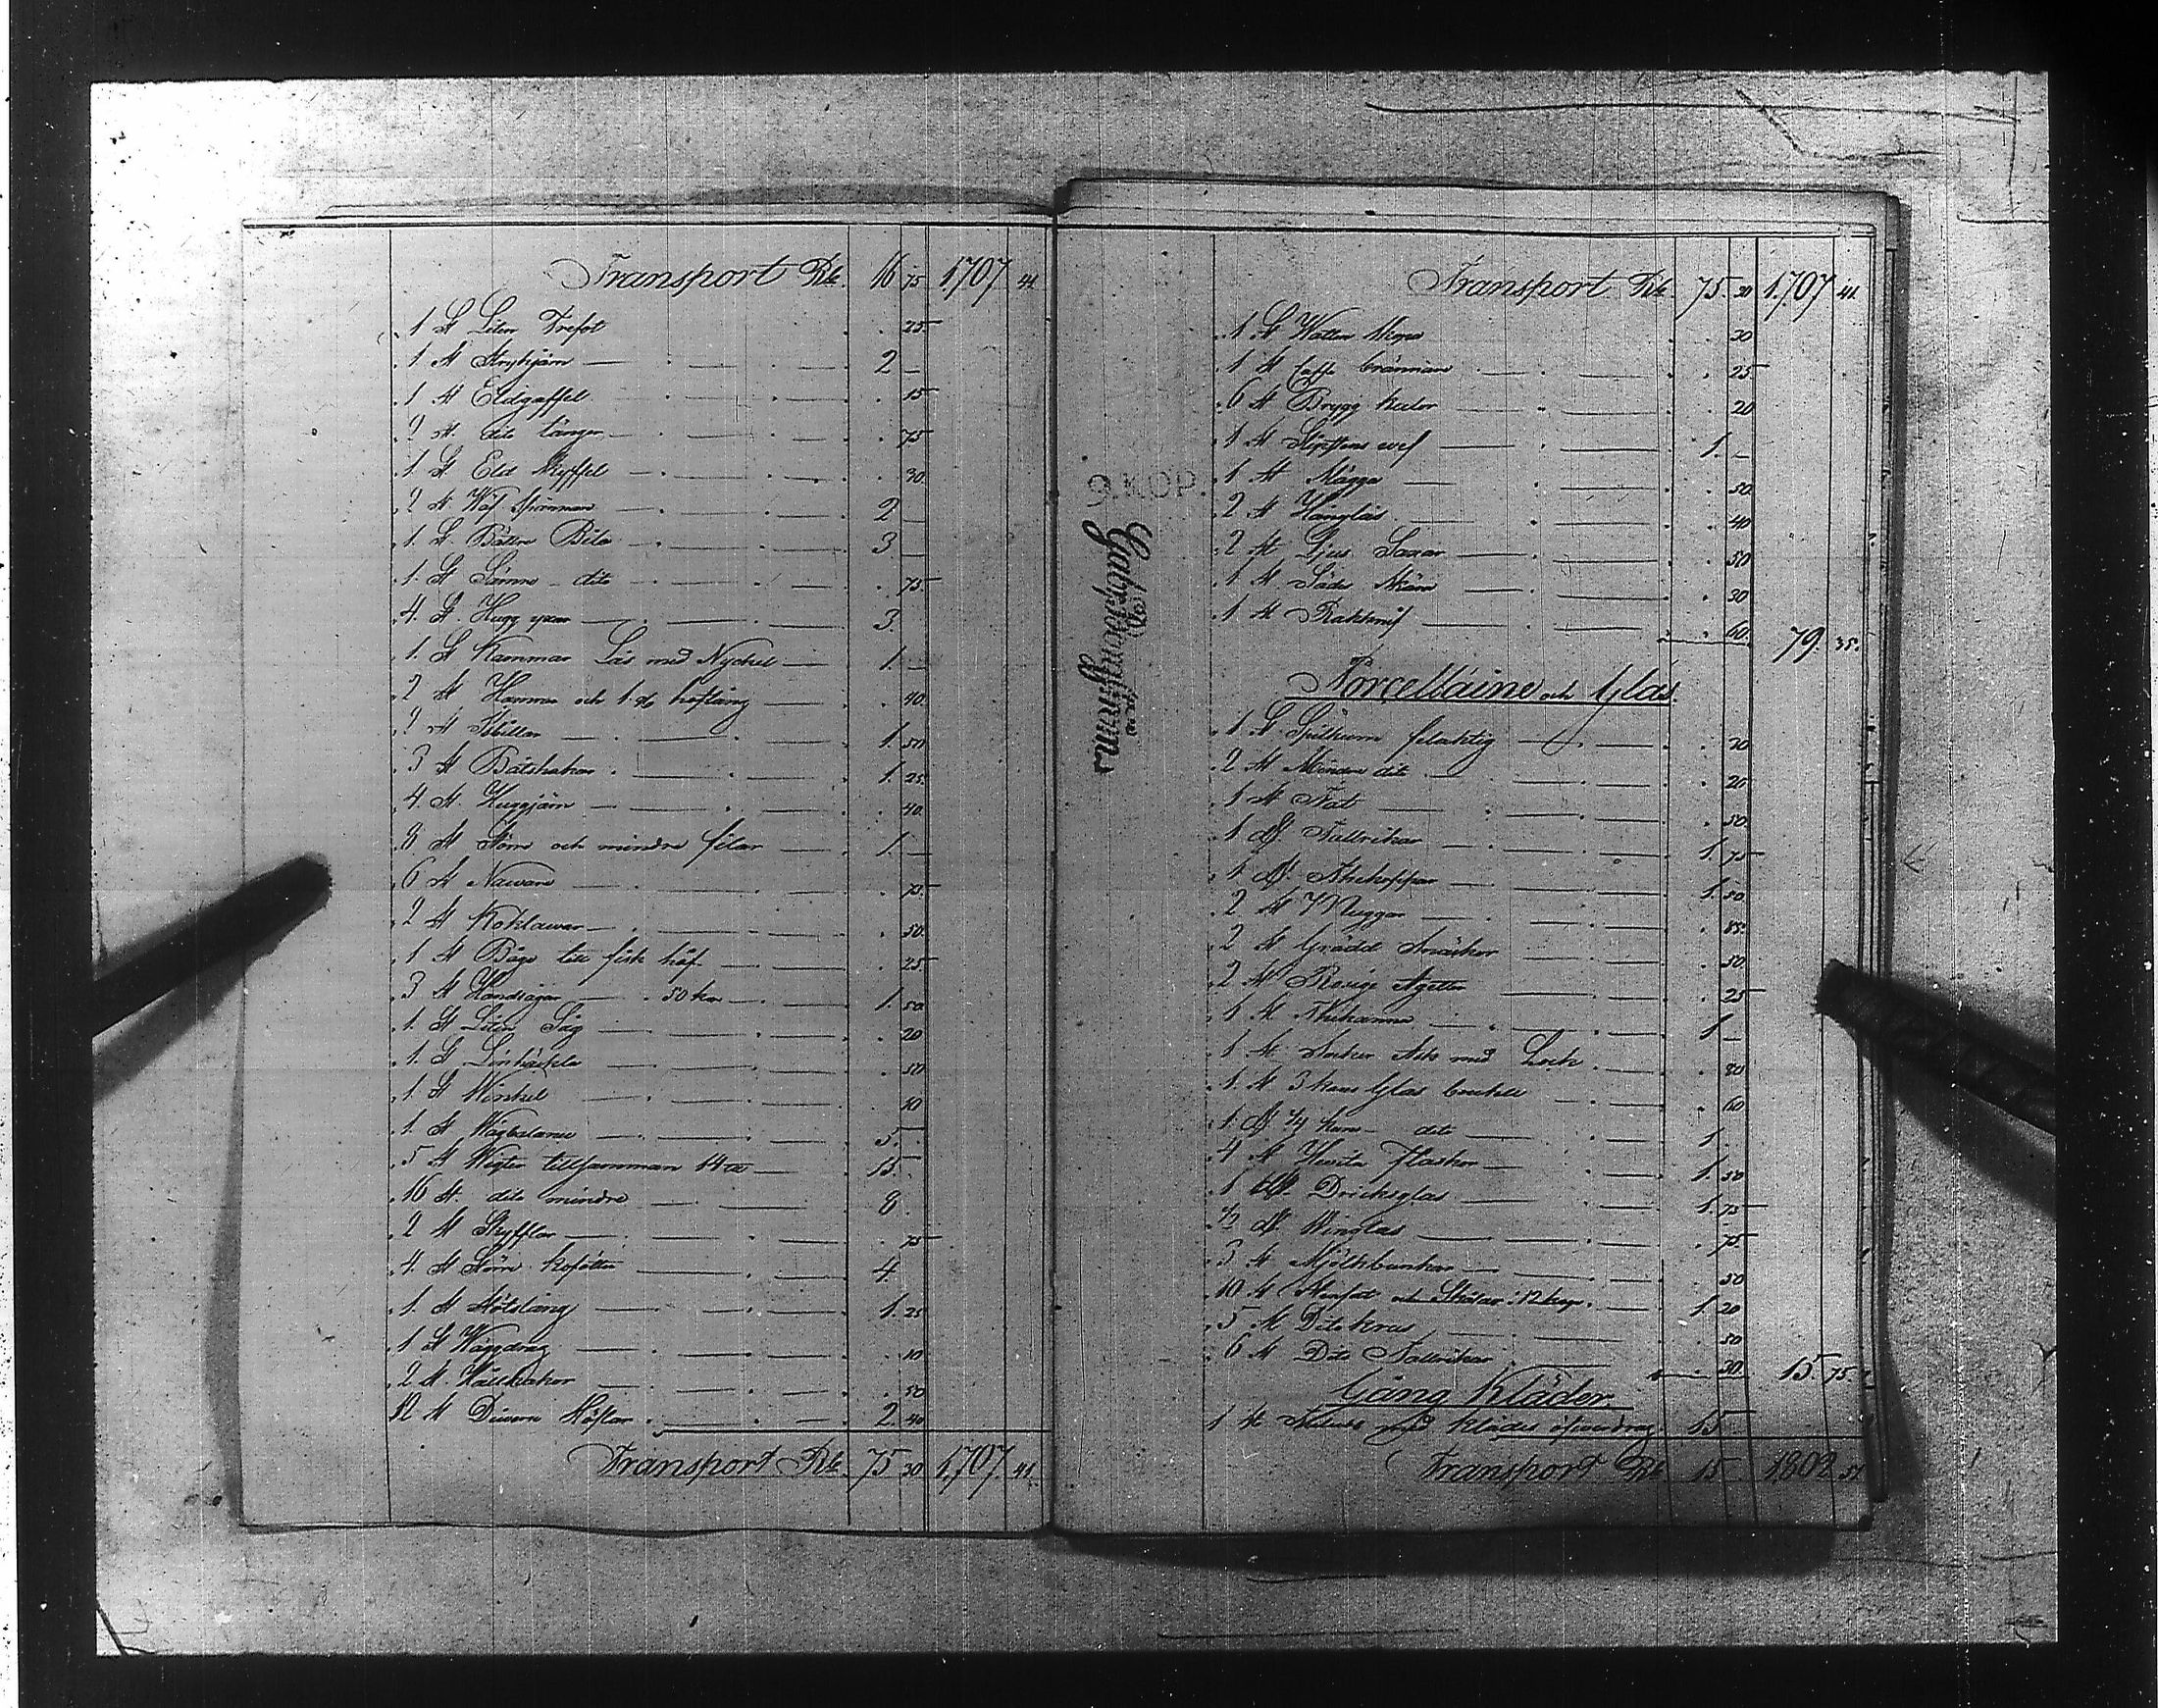 Transport Rb. 16 75 1,707 41
1 St Liten Trefot 25
1 St Strykjärn 2 —
1 St Eldgaffel 15
2 St. dito tänger 75
1 St Eld skyffel 30.
2 St. Wäf spännare 2 —
1. St. Bättre Bila 3 —
1. St Sämre dito 75
4. St. Hugg yxor 3.
1. St Kammar Lås med Nyckel 1. —
2 St Hammare och 1 st hoftång 40.
2 St Isbillar 1. 50
3 St Båtshakar 1. 25.
4. St. Huggjärn 40.
8 St Större och mindre filar 1. —
6 St Naware 75
2 St Koklawar 50.
1 St Båge till fisk håf 25
3 St Handsågar 50 kop 1. 50.
1. St Liten Såg 20
1. St Linhäckla 50
1. St Winkel 10
1. St Wågbalans 5.
5 St Wigter tillsamman 14 15.
16 St. dito mindre 8.
2 St Skyfflar 75
4. St Större kofötter 4.
1. St Stötstång 1. 25
1 St Wäggdrag 10
2 St. Hällhakar 50
12 St Diverse Häflar 2. 40
Transport Rb. 75 30 1,707. 41
Transport Rb. 75. 30 1.707 41.
1 St Watten 30
1 St Caffe brännare 25
6 St Brygg kedor 20
1 St 1. —
1 St 50.
2 St Hänglås 40
2 St Ljus Saxar 50
1 St Sädes skära 30
1 St Rakknif 60. 79. 35.
Porcellaine och Glas.
1 St Spilkum felaktig 30
2 St Mindre dito 25
1 St Fat 50.
1 D. Tallrikar 1. 75
1 D. Thekoppar 1. 50
2 St Muggar 85.
2 St Grädd Snäckor 50
2 St 25
1 St Thekanna 1 —
1 St Socker Ask med Lock 80
1. St 3 kans Glas butelj 60
1 D. 1/4 kans dito 1.
4 St Hwita flaskor 1. 50
1 D. Dricksglas 1. 75
1/2 D. Winglas 75
5 St Mjölkbunkar 50
10 St Stenfat och Skålar 12 kop. 1. 20
5 St Dito krus 50
6 St Dito Tallrikar 30. 15 75.
Gång Kläder.
1 St med klädes öfverdrag 15
Transport Rb. 15 1802 51
9. KOP.